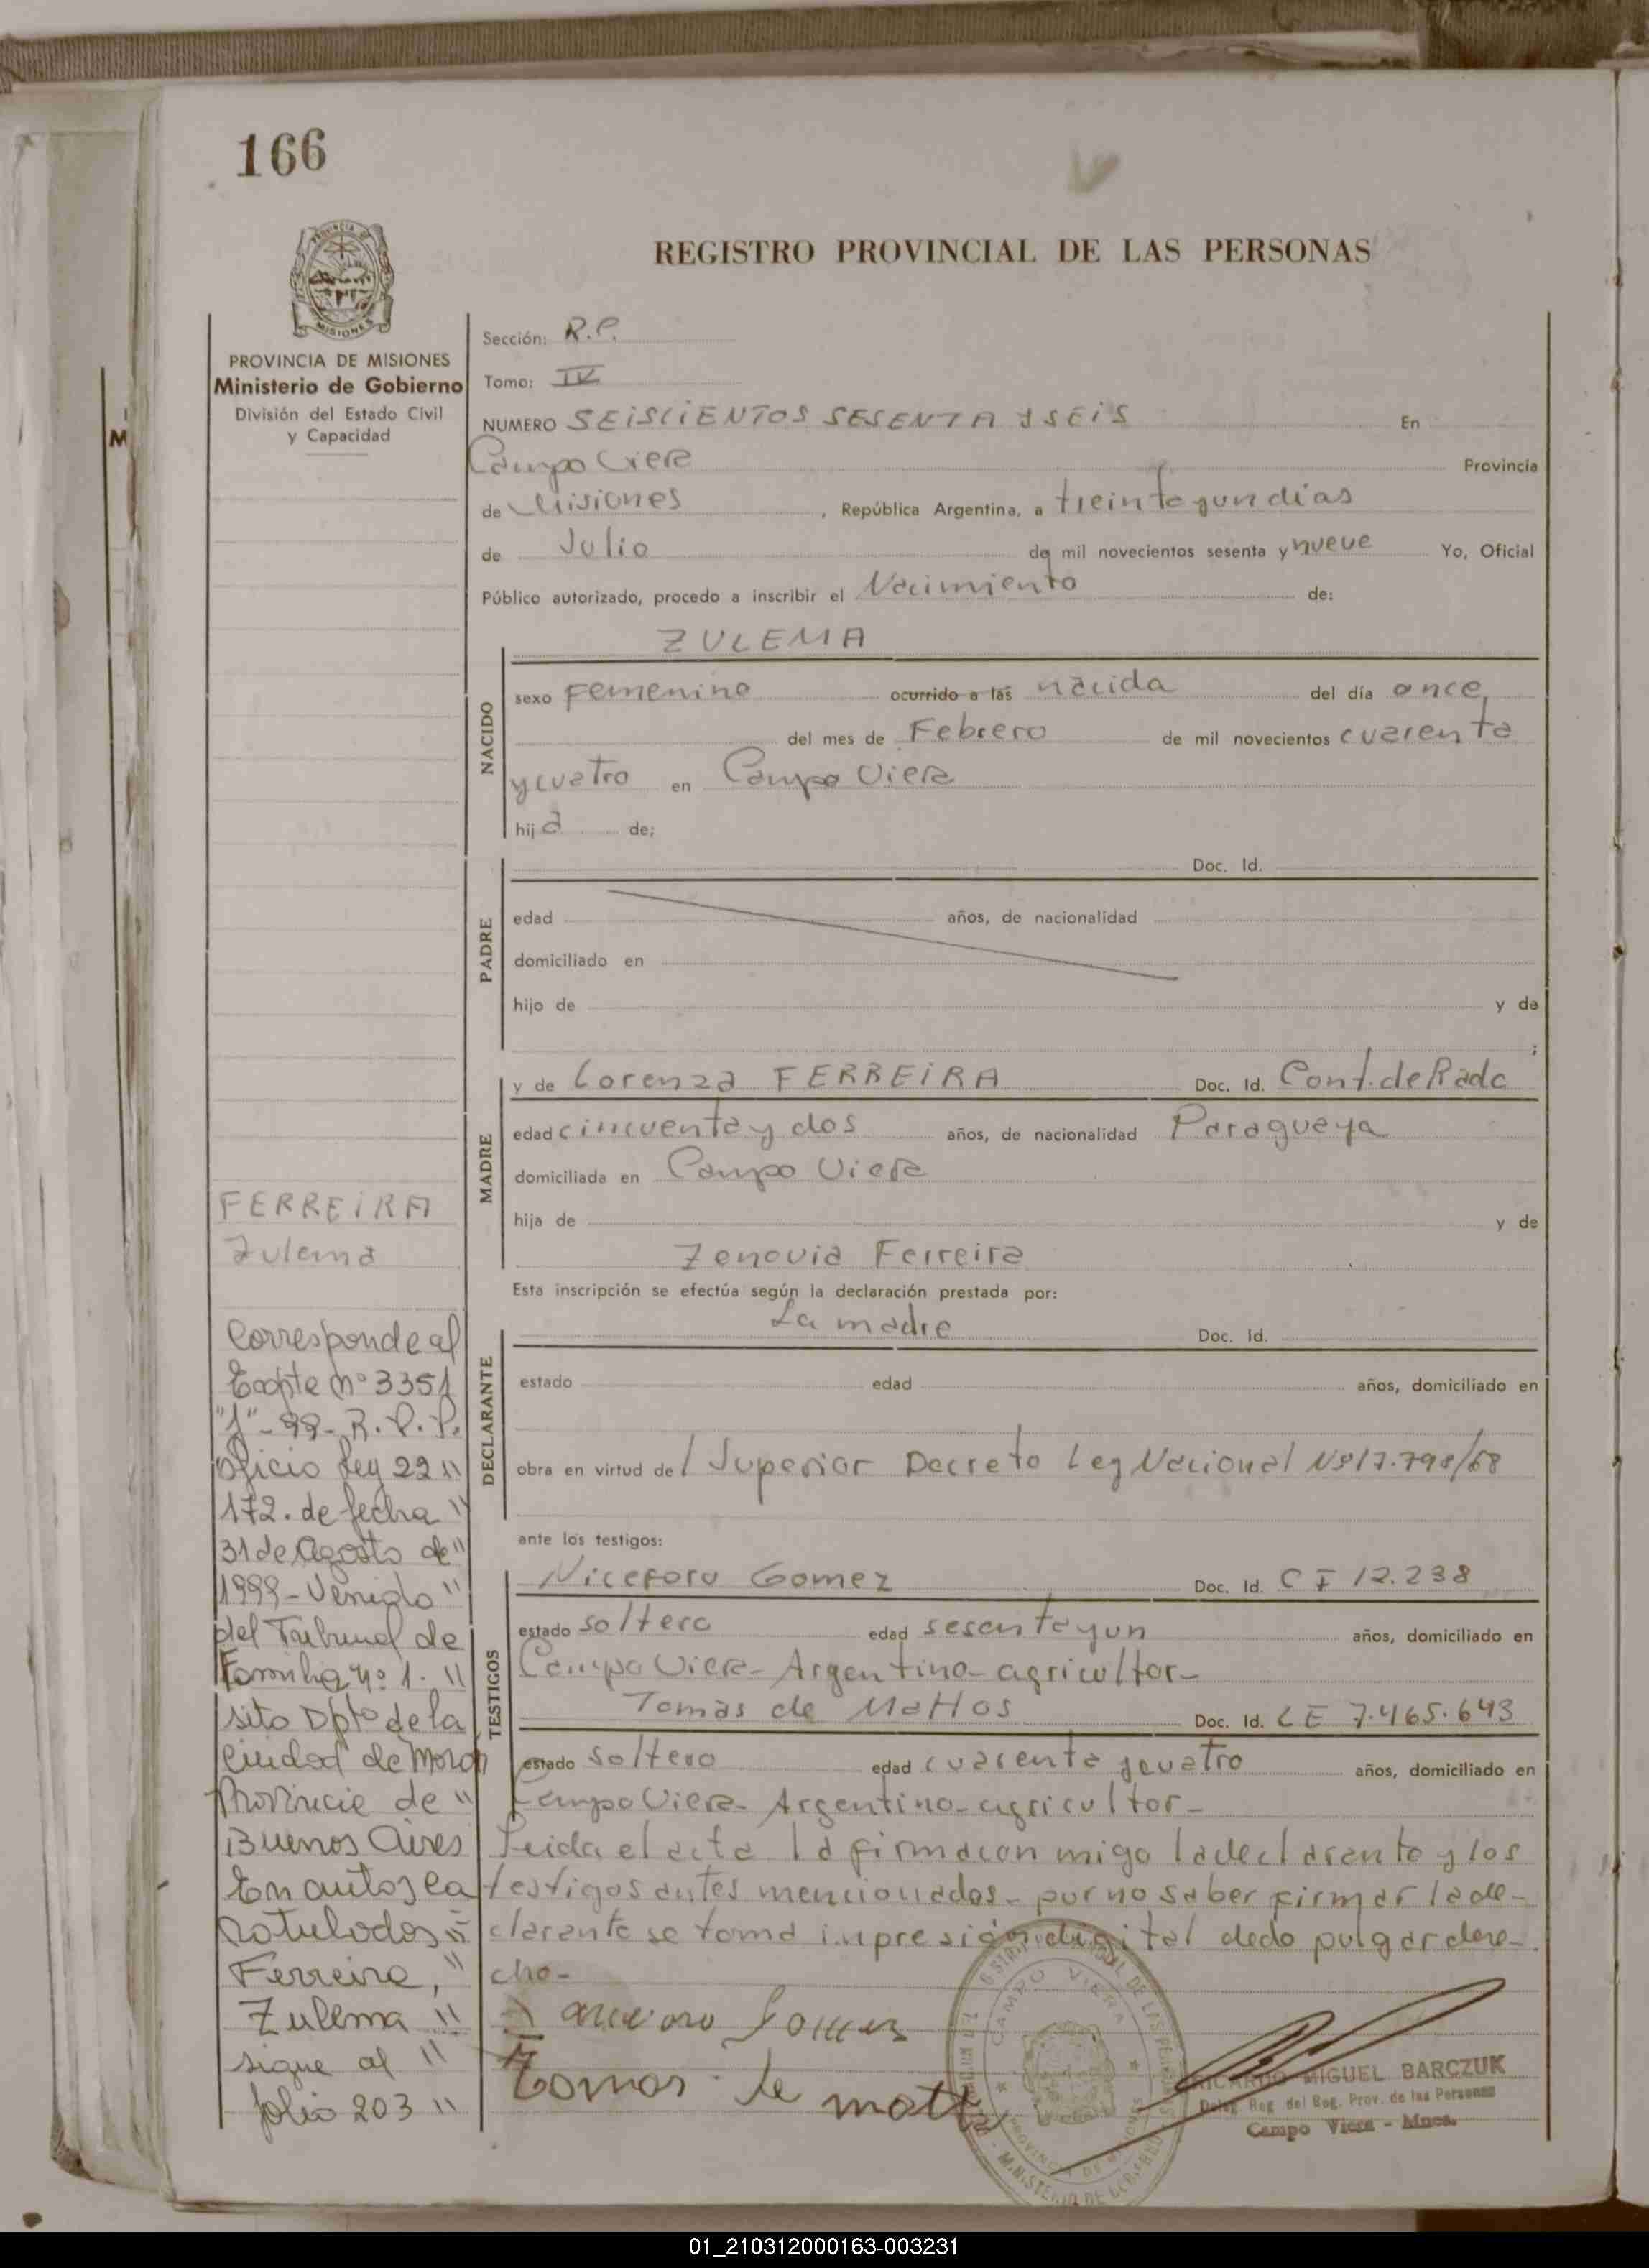 166
REGISTRO PROVINCIAL DE LAS PERSONAS
PROVINCIA DE MISIONES
Ministerio de Gobierno
División del Estado Civil
y Capacidad
M
Sección: R.P.
Tomo: IV
NUMERO SEISCIENTOS SESENTA Y SEIS En
Campo Viera Provincia
de Misiones, República Argentina, a treinta y un días
de Julio de mil novecientos sesenta y nueve Yo, Oficial
Público autorizado, procedo a inscribir el Nacimiento de:
ZULEMA
NACIDO
sexo Femenino ocurrido a las nacida del día once
del mes de Febrero de mil novecientos cuarenta
y cuatro en Campo Viera
hija de;
PADRE
Doc. Id.
edad años, de nacionalidad
domiciliado en
hijo de y de
;
MADRE
y de Lorenza FERREIRA Doc. Id. Cont. de Radc
edad cincuenta y dos años, de nacionalidad Paraguaya
domiciliada en Campo Viera
hija de y de
Zenovia Ferreira
Esta inscripción se efectúa según la declaración prestada por:
DECLARANTE
La madre Doc. Id.
estado edad años, domiciliado en
obra en virtud del Superior Decreto Ley Nacional Nº 17.798/68
ante los testigos:
TESTIGOS
Niceforo Gomez Doc. Id. C I 12.238
estado soltero edad sesenta y un años, domiciliado en
Campo Viera - Argentino - agricultor -
Tomas de Mattos Doc. Id. L E 7.465.643
estado soltero edad cuarenta y cuatro años, domiciliado en
Campo Viera - Argentino - agricultor -
Leida el acta la firma con migo la declarante y los
testigos antes mencionados - por no saber firmar la de-
clarante se toma impresión digital dedo pulgar dere-
cho -
Tomas de matto
CAMPO VIERA
PROVINCIA DE MISIONES
RICARDO MIGUEL BARCZUK
Deleg Reg del Reg. Prov. de las Personas
Campo Viera - Mnes.
FERREIRA
Zulema
Corresponde al
Expte nº 3351
"J" - 99 - R. P. P.
oficio ley 22 "
172. de fecha "
31 de Agosto de "
1999 - Venido "
del Tribunal de
Familia nº 1. "
sito Dpto de la
Ciudad de Morón
Provincia de "
Buenos Aires
En autos ca
ratulados "
Ferreira, "
Zulema "
sigue al "
folio 203 "
01_210312000163-003231